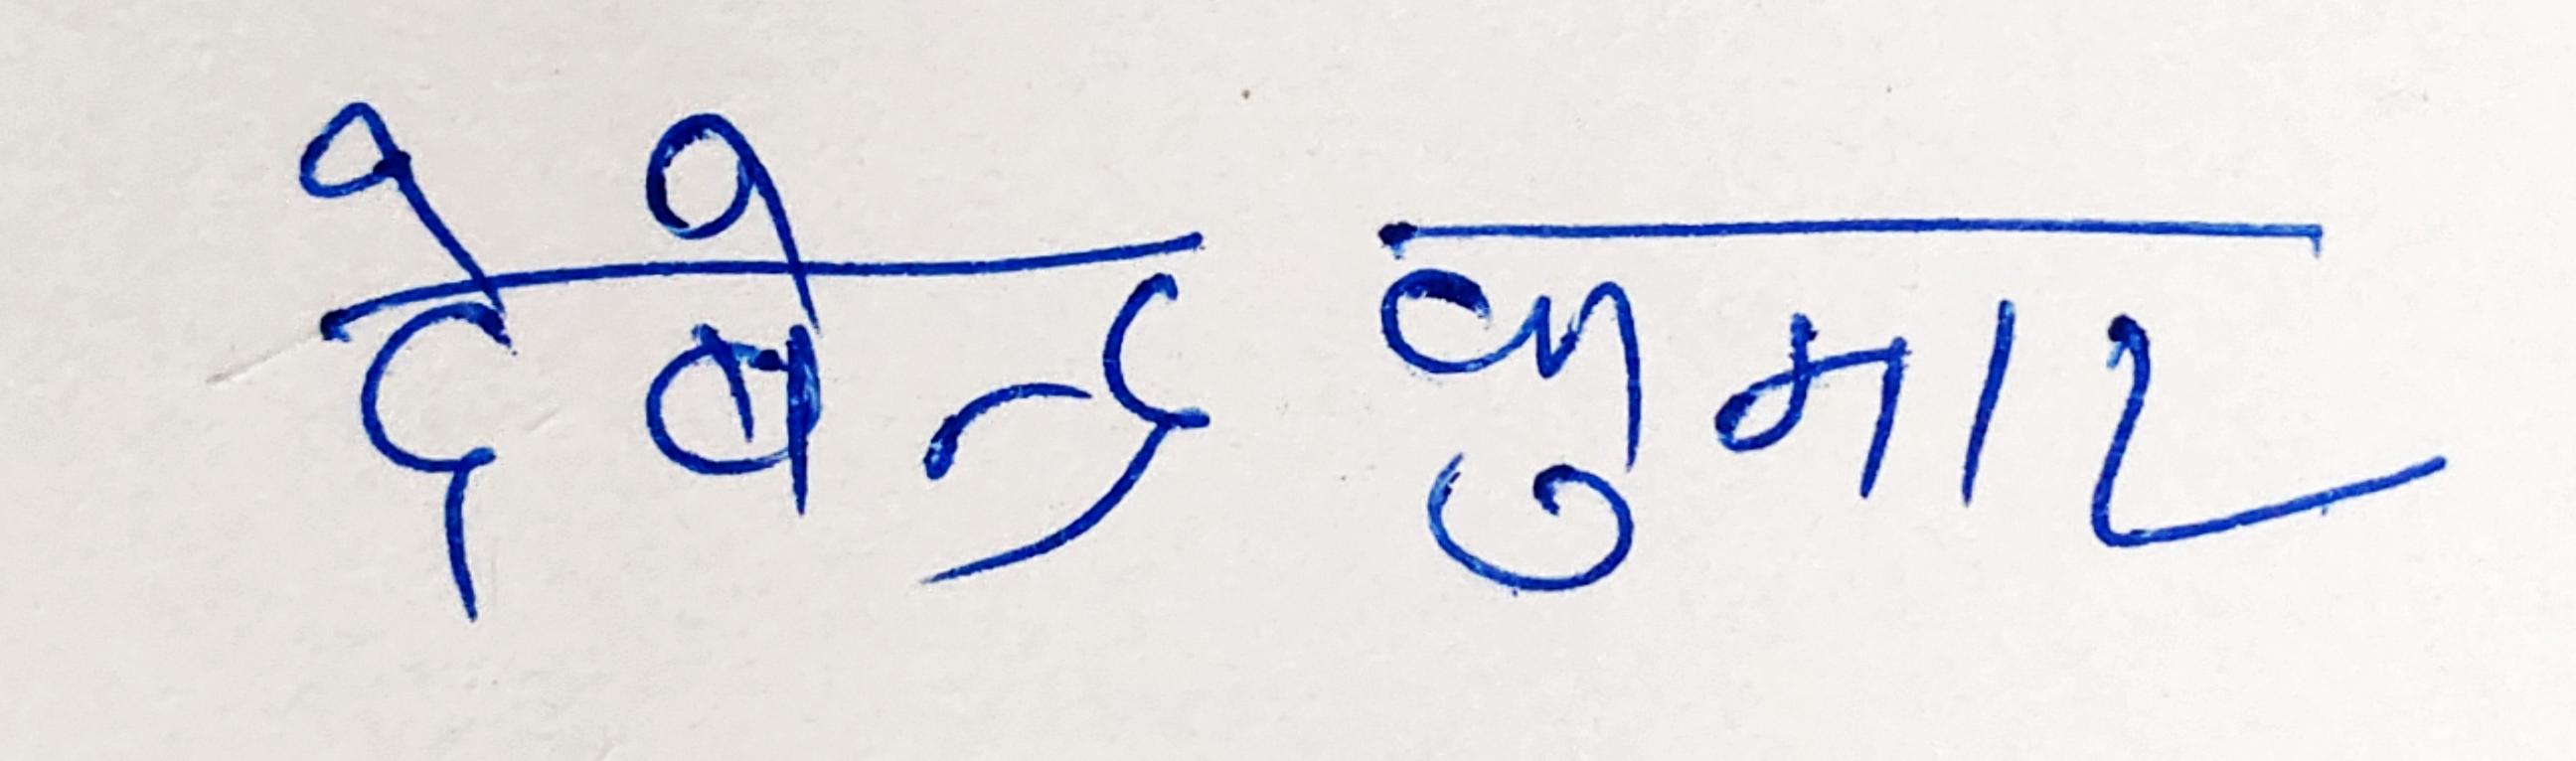 देबेन्द्र कुमार